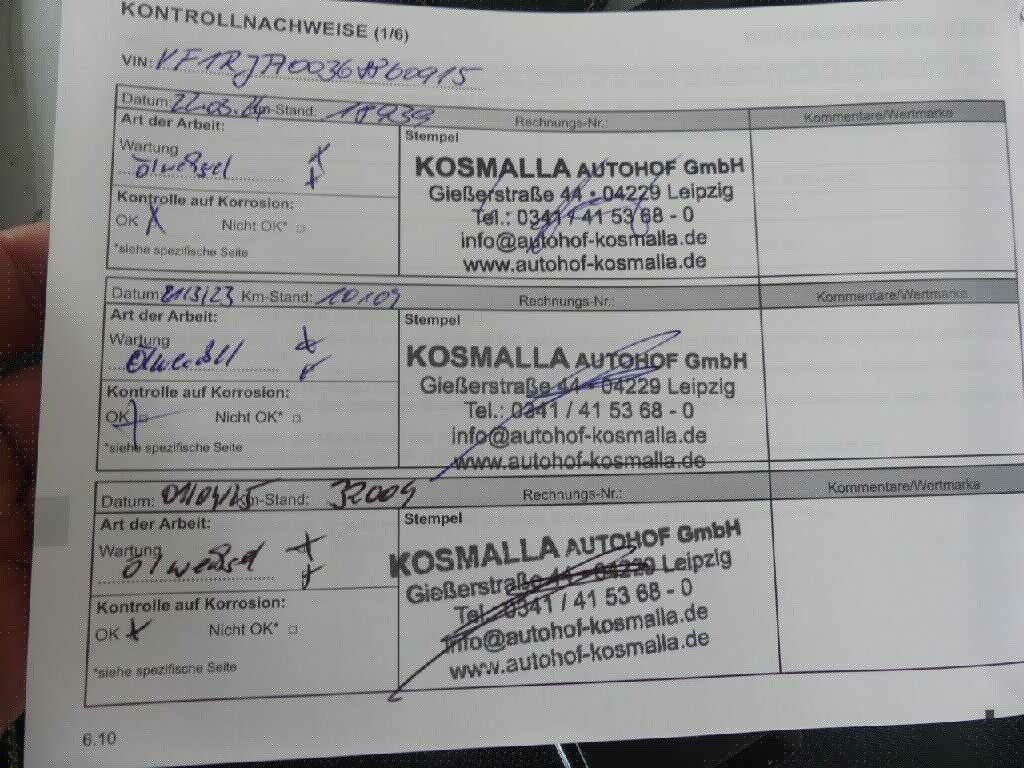 KONTROLLNACHWEISE (1/6)
VIN:
Datum 22.03.24 Km-Stand: 18939 Rechnungs-Nr.: Kommentare/Wertmarke
Art der Arbeit: Stempel
Wartung
ölwechsel
Kontrolle auf Korrosion:
OK X Nicht OK*
*siehe spezifische Seite
KOSMALLA AUTOHOF GmbH
Gießerstraße 44 • 04229 Leipzig
Tel.: 0341 / 41 53 68 - 0
info@autohof-kosmalla.de
www.autohof-kosmalla.de
Datum 21/3/23 Km-Stand: 10109 Rechnungs-Nr.: Kommentare/Wertmarke
Art der Arbeit: Stempel
Wartung
Ölwechsel
Kontrolle auf Korrosion:
OK Nicht OK*
*siehe spezifische Seite
KOSMALLA AUTOHOF GmbH
Gießerstraße 44 - 04229 Leipzig
Tel.: 0341 / 41 53 68 - 0
info@autohof-kosmalla.de
www.autohof-kosmalla.de
Datum: 01/04/25 Km-Stand: 32009 Rechnungs-Nr.: Kommentare/Wertmarke
Art der Arbeit: Stempel
Wartung
ölwechsel
Kontrolle auf Korrosion:
OK X Nicht OK*
*siehe spezifische Seite
KOSMALLA AUTOHOF GmbH
Gießerstraße 44 - 04229 Leipzig
Tel.: 0341 / 41 53 68 - 0
info@autohof-kosmalla.de
www.autohof-kosmalla.de
6.10